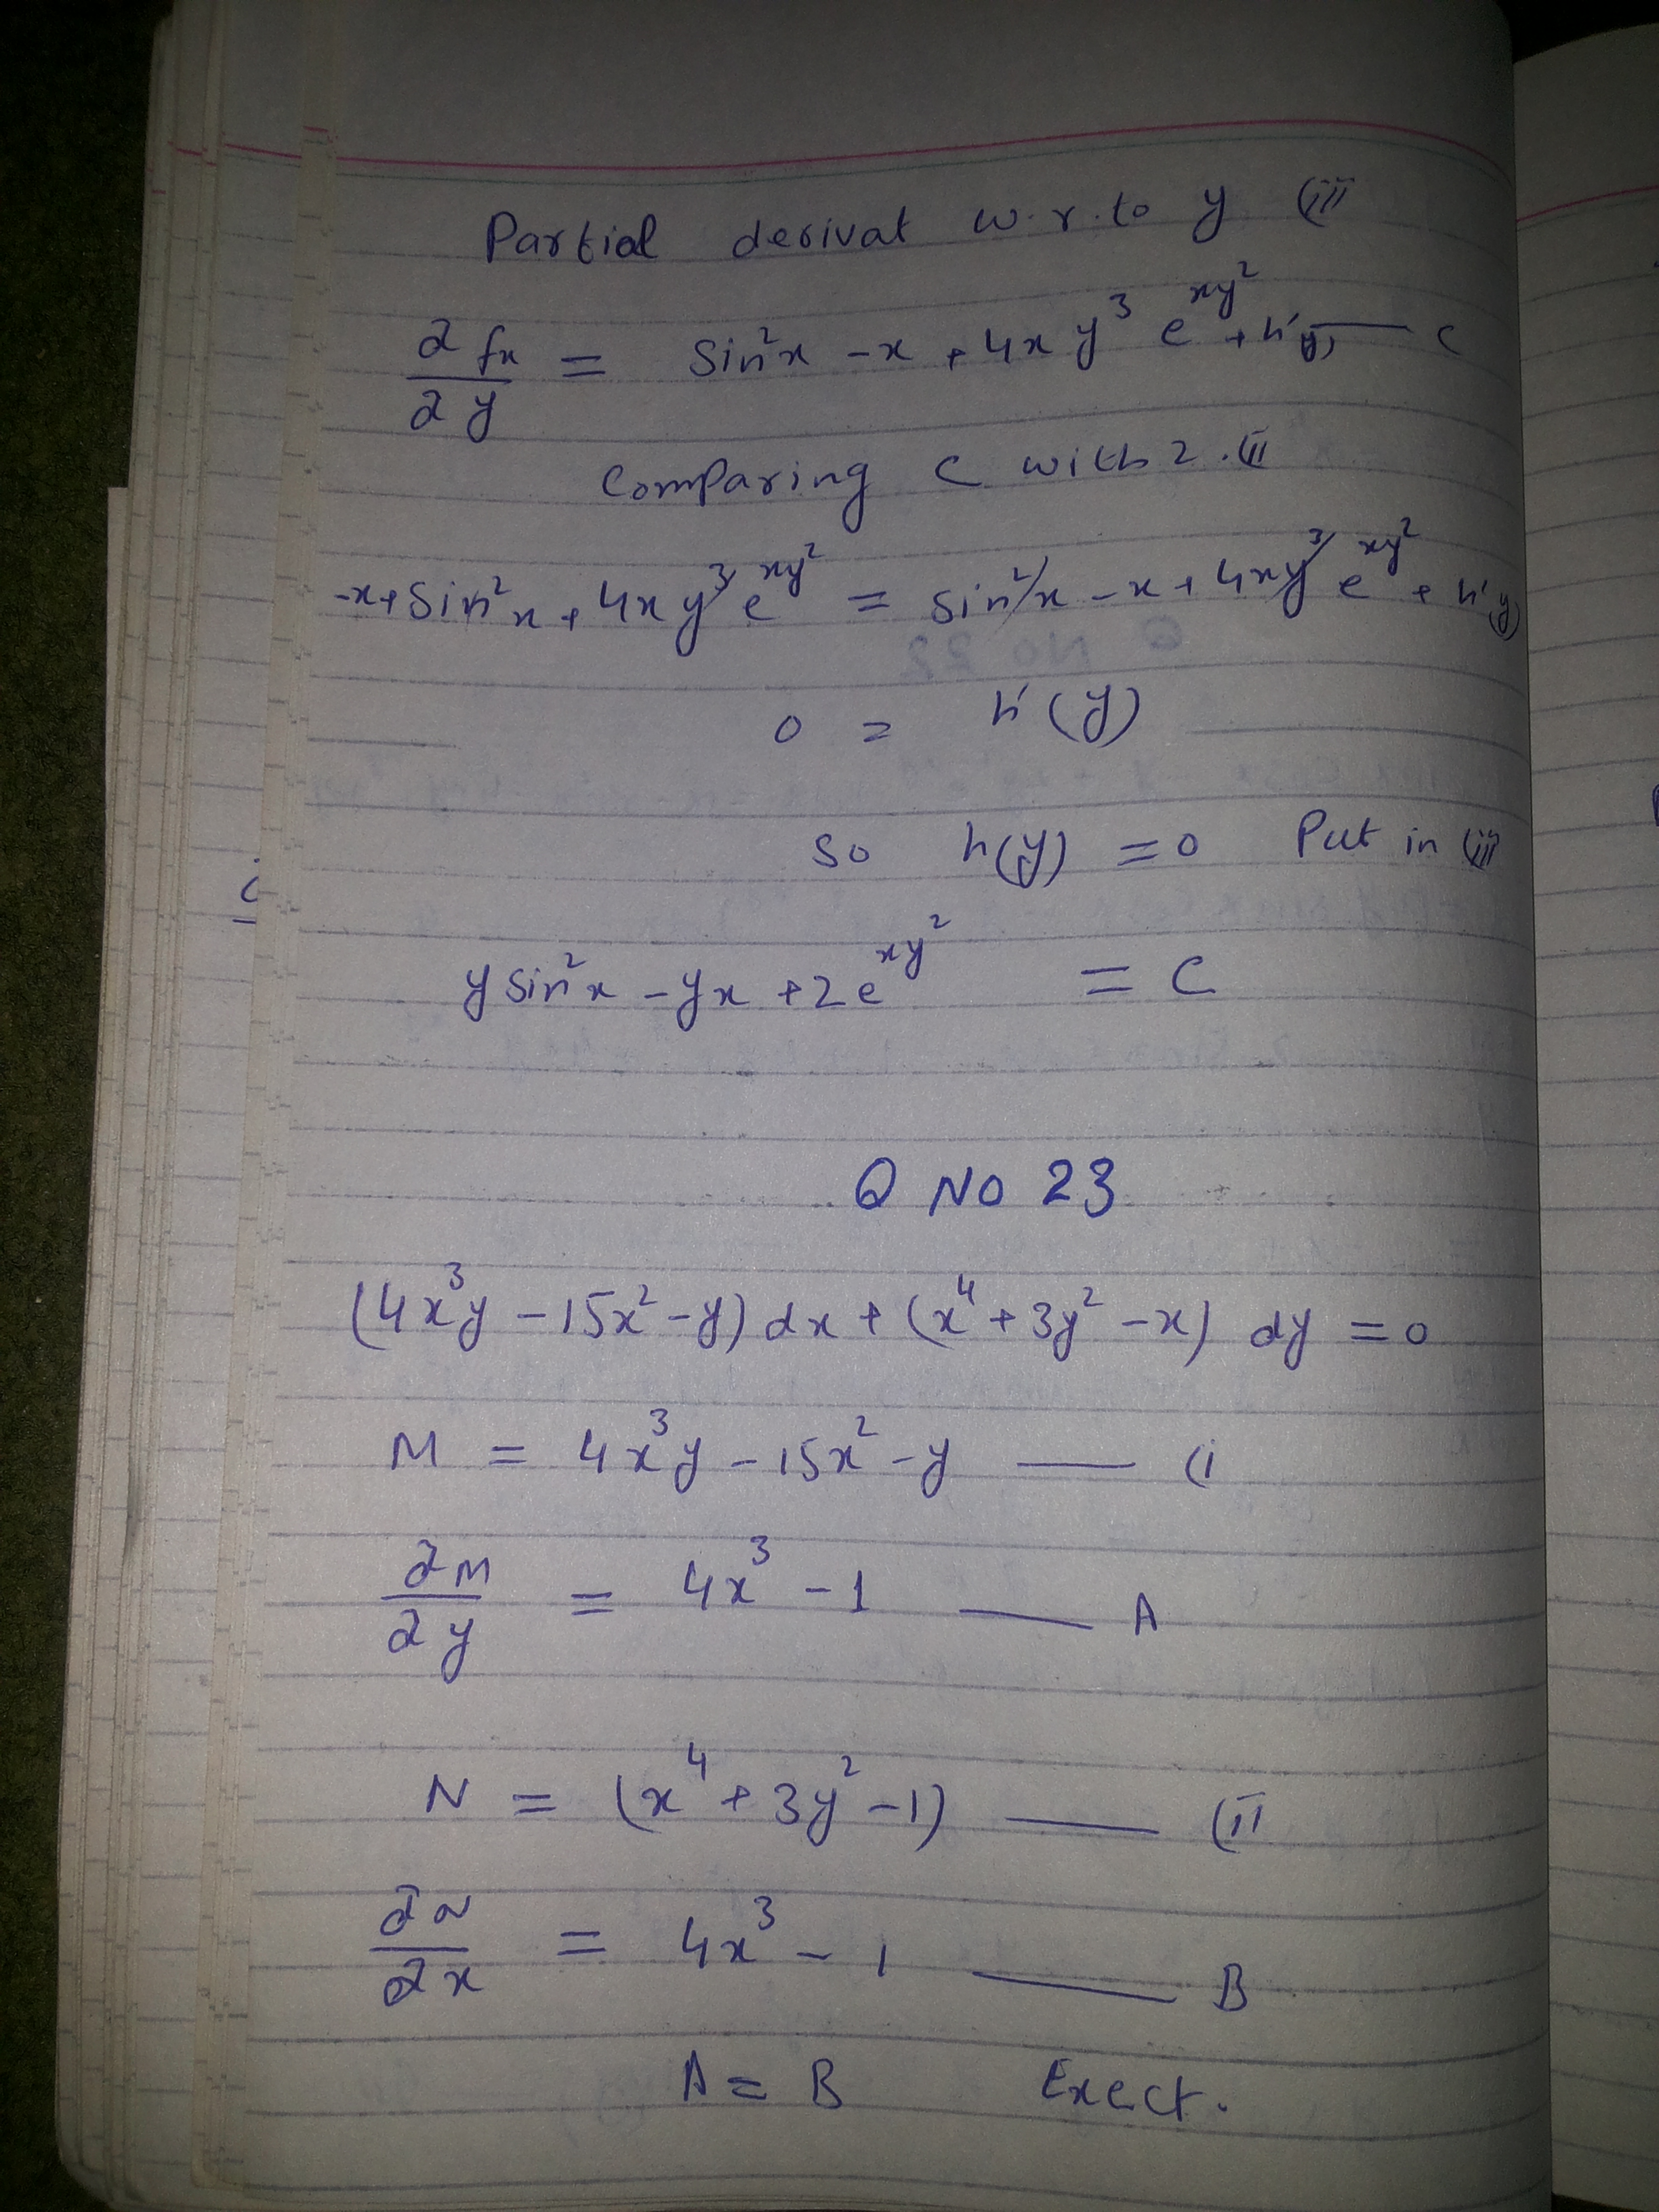 Partial derivat w.r.to y (iii
∂fx/∂y = Sin²x - x + 4xy³ e^xy² + h'(y) — C
Comparing C with 2.(ii
-x+Sin²x + 4xy³ e^xy² = Sin²x - x + 4xy³ e^xy² + h'(y)
0 = h'(y)
So h(y) = 0 Put in (iii
ySin²x - yx + 2e^xy² = C
Q NO 23
(4x³y - 15x² - y) dx + (x⁴ + 3y² - x) dy = 0
M = 4x³y - 15x² - y — (i
∂M/∂y = 4x³ - 1 — A
N = (x⁴ + 3y² - 1) — (ii
∂N/∂x = 4x³ - 1 — B
A = B Exect.